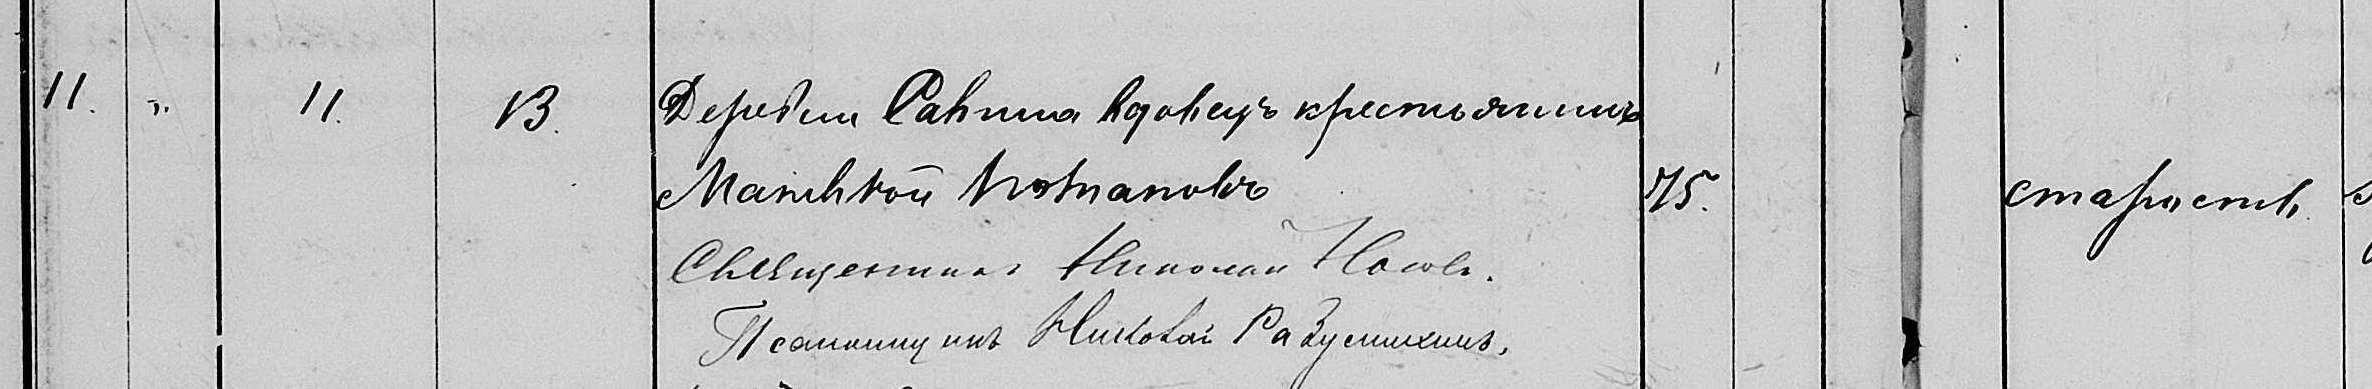 11. " 11. 13. Деревни Савина вдовецъ крестьянинъ
Матвѣй Потаповъ 75. старости
Священникъ Николай Носовъ.
Псаломщикъ Николай Разумихинъ.